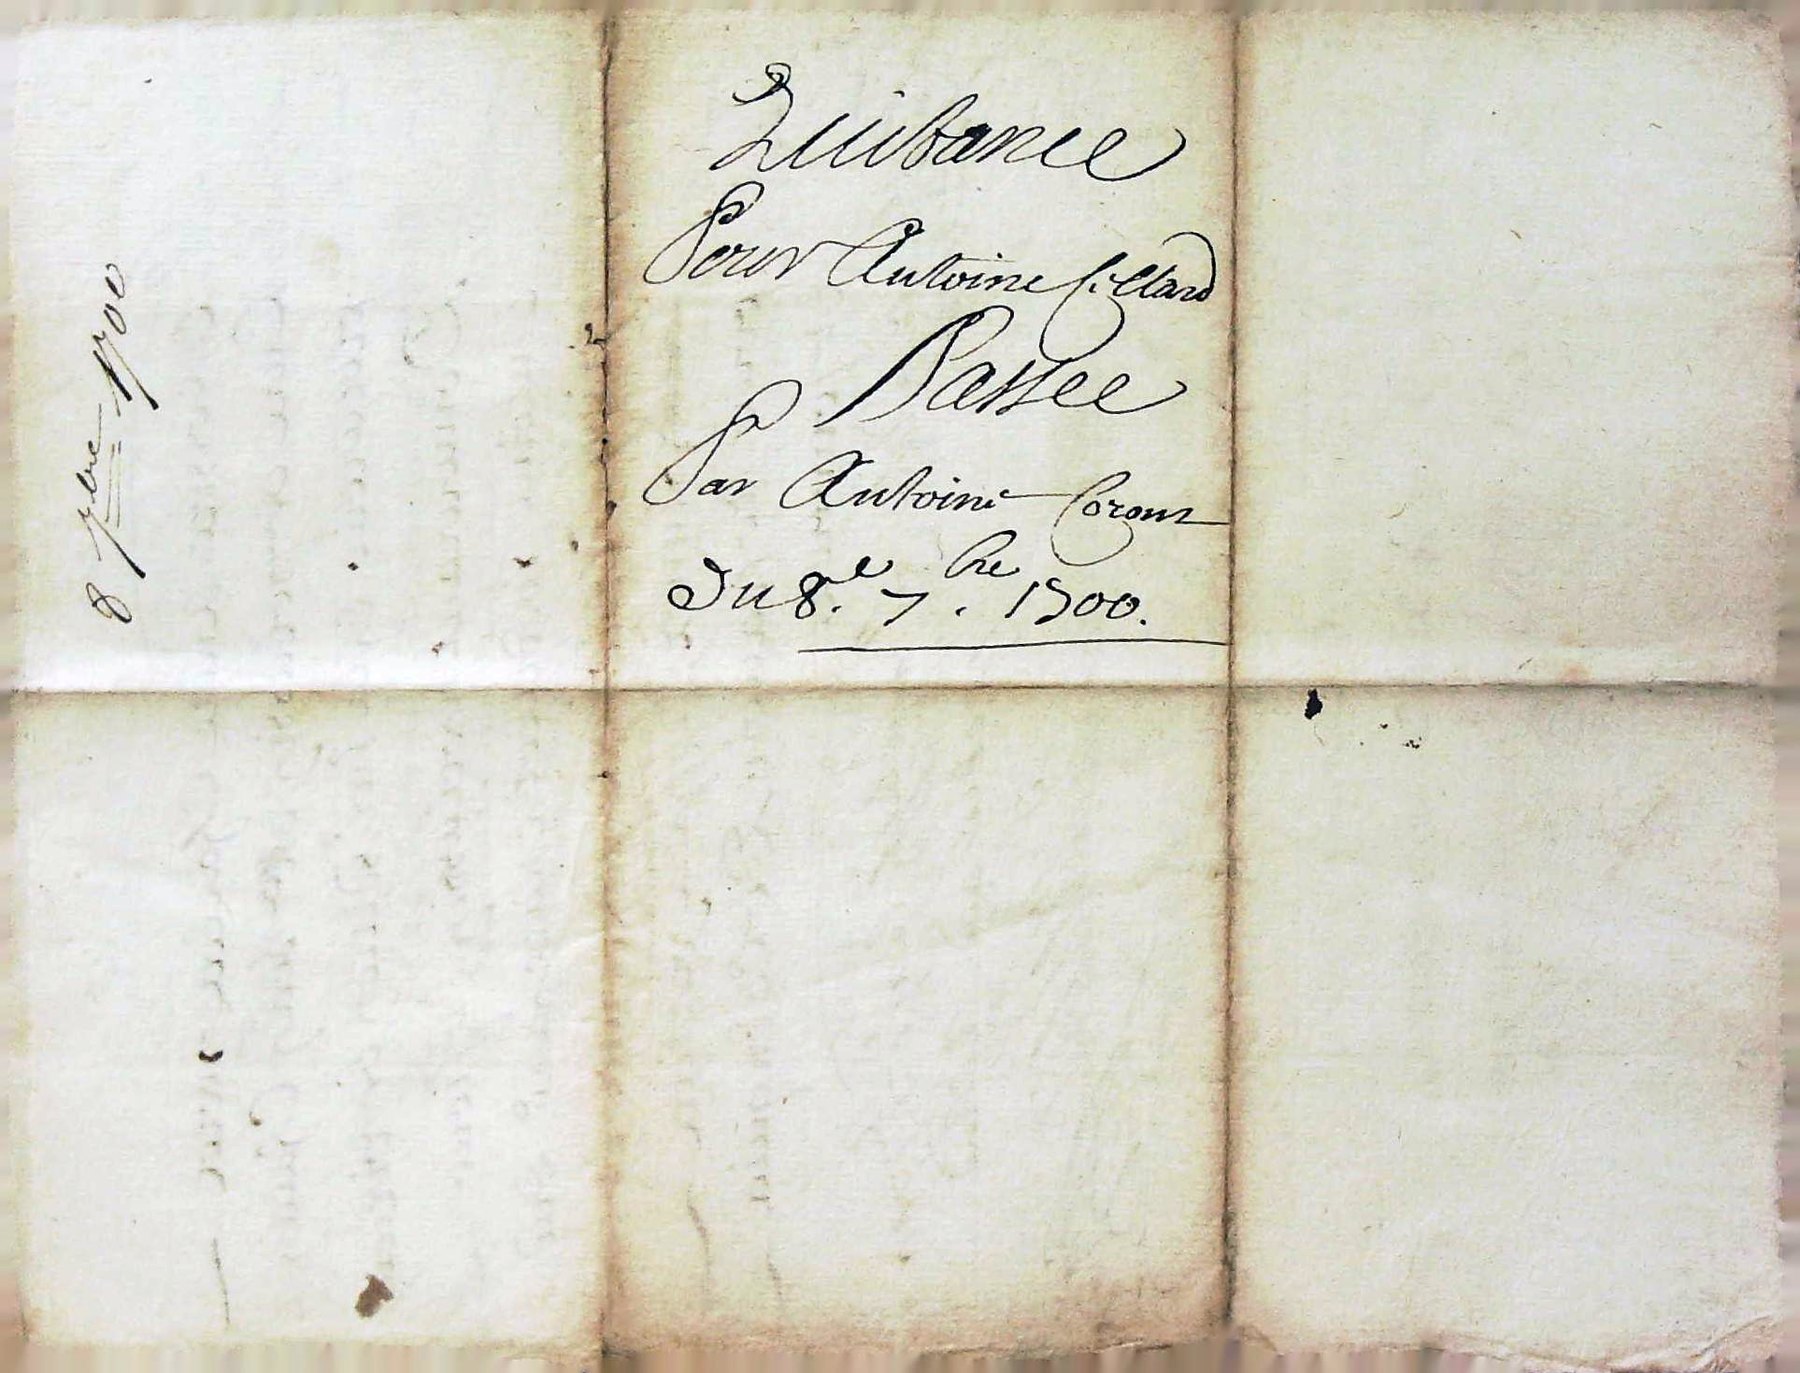 Quittance
Pour Antoine Cillard
Passee
Par Antoine
Du 8.e 7.bre 1700.
8 7bre 1700